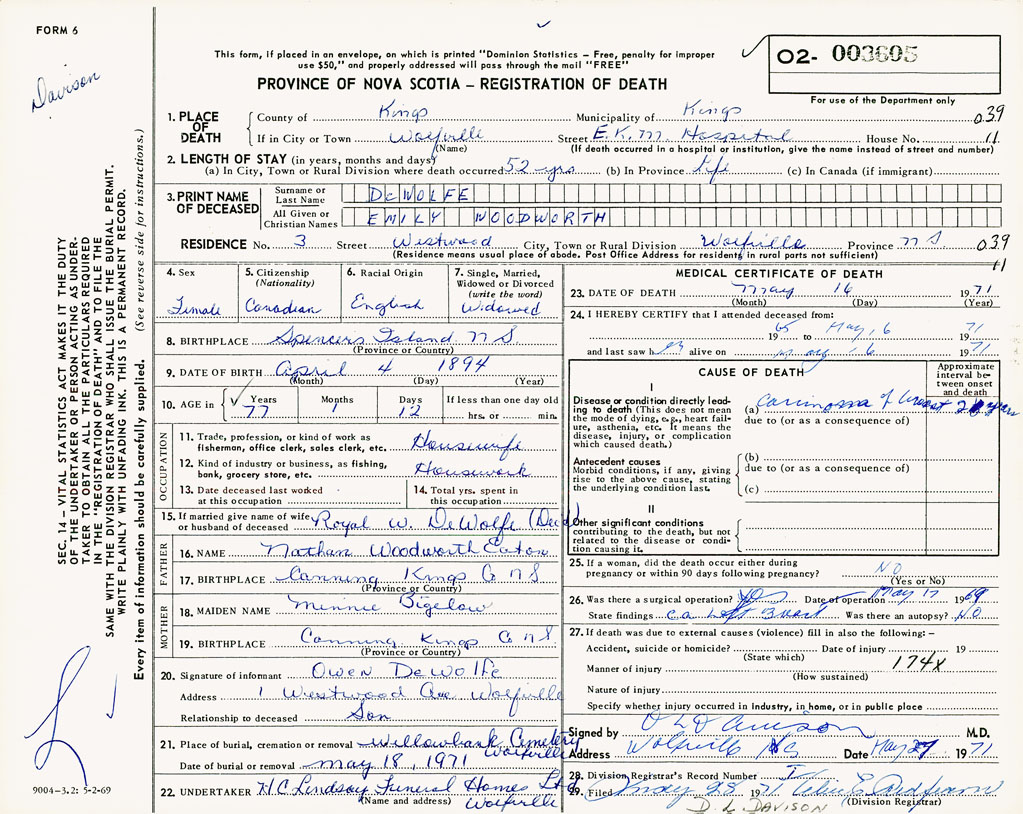 FORM 6
Davison
This form, if placed in an envelope, on which is printed "Dominion Statistics – Free, penalty for improper
use $50," and properly addressed will pass through the mail "FREE"
PROVINCE OF NOVA SCOTIA – REGISTRATION OF DEATH
O2- 003605
For use of the Department only
1. PLACE OF DEATH County of Kings Municipality of Kings 039
If in City or Town Wolfville Street E.K.M. Hospital House No. 11
(Name) (If death occurred in a hospital or institution, give the name instead of street and number)
2. LENGTH OF STAY (in years, months and days)
(a) In City, Town or Rural Division where death occurred 52 yrs (b) In Province Life (c) In Canada (if immigrant)
3. PRINT NAME OF DECEASED Surname or Last Name DeWOLFE
All Given or Christian Names EMILY WOODWORTH
RESIDENCE No. 3 Street Westwood City, Town or Rural Division Wolfville Province NS 039
(Residence means usual place of abode. Post Office Address for residents in rural parts not sufficient) 11
4. Sex Female
5. Citizenship (Nationality) Canadian
6. Racial Origin English
7. Single, Married, Widowed or Divorced (write the word) Widowed
8. BIRTHPLACE Spencers Island N.S.
(Province or Country)
9. DATE OF BIRTH April 4 1894
(Month) (Day) (Year)
10. AGE in Years 77 Months 1 Days 12 If less than one day old hrs. or min.
OCCUPATION
11. Trade, profession, or kind of work as fisherman, office clerk, sales clerk, etc. Housewife
12. Kind of industry or business, as fishing, bank, grocery store, etc. Housework
13. Date deceased last worked at this occupation
14. Total yrs. spent in this occupation
15. If married give name of wife or husband of deceased Royal W. DeWolfe (Dead)
FATHER
16. NAME Nathan Woodworth Eaton
17. BIRTHPLACE Canning Kings Co N S
(Province or Country)
MOTHER
18. MAIDEN NAME Minnie Bigelow
19. BIRTHPLACE Canning Kings Co N S.
(Province or Country)
20. Signature of informant Owen DeWolfe
Address 1 Westwood Ave Wolfville
Relationship to deceased Son
21. Place of burial, cremation or removal Willowbank Cemetery Wolfville
Date of burial or removal May 18, 1971
22. UNDERTAKER H.C. Lindsay Funeral Homes Ltd. Wolfville
(Name and address)
MEDICAL CERTIFICATE OF DEATH
23. DATE OF DEATH May 16 1971
(Month) (Day) (Year)
24. I HEREBY CERTIFY that I attended deceased from:
1965 to May 16 1971
and last saw her alive on May 16 1971
CAUSE OF DEATH
Approximate interval between onset and death
I
Disease or condition directly leading to death (This does not mean the mode of dying, e.g., heart failure, asthenia, etc. It means the disease, injury, or complication which caused death.)
(a) Carcinoma of breast 2 years
due to (or as a consequence of)
Antecedent causes
Morbid conditions, if any, giving rise to the above cause, stating the underlying condition last.
(b)
due to (or as a consequence of)
(c)
II
Other significant conditions
contributing to the death, but not related to the disease or condition causing it.
25. If a woman, did the death occur either during pregnancy or within 90 days following pregnancy? NO
(Yes or No)
26. Was there a surgical operation? Yes Date of operation May 17 1969
State findings ca left Breast Was there an autopsy? NO
27. If death was due to external causes (violence) fill in also the following: –
Accident, suicide or homicide? Date of injury 19
(State which)
Manner of injury 174X
(How sustained)
Nature of injury
Specify whether injury occurred in Industry, in home, or in public place
Signed by D L Davison M.D.
Address Wolfville NS Date May 27 1971
28. Division Registrar's Record Number
29. Filed May 28 1971
(Division Registrar)
D. L. DAVISON
SEC. 14 – VITAL STATISTICS ACT MAKES IT THE DUTY
OF THE UNDERTAKER OR PERSON ACTING AS UNDER-
TAKER TO OBTAIN ALL THE PARTICULARS REQUIRED
IN THE "REGISTRATION OF DEATH" AND TO FILE THE
SAME WITH THE DIVISION REGISTRAR WHO SHALL ISSUE THE BURIAL PERMIT.
WRITE PLAINLY WITH UNFADING INK. THIS IS A PERMANENT RECORD.
Every item of information should be carefully supplied. (See reverse side for instructions.)
9004-3.2: 5-2-69